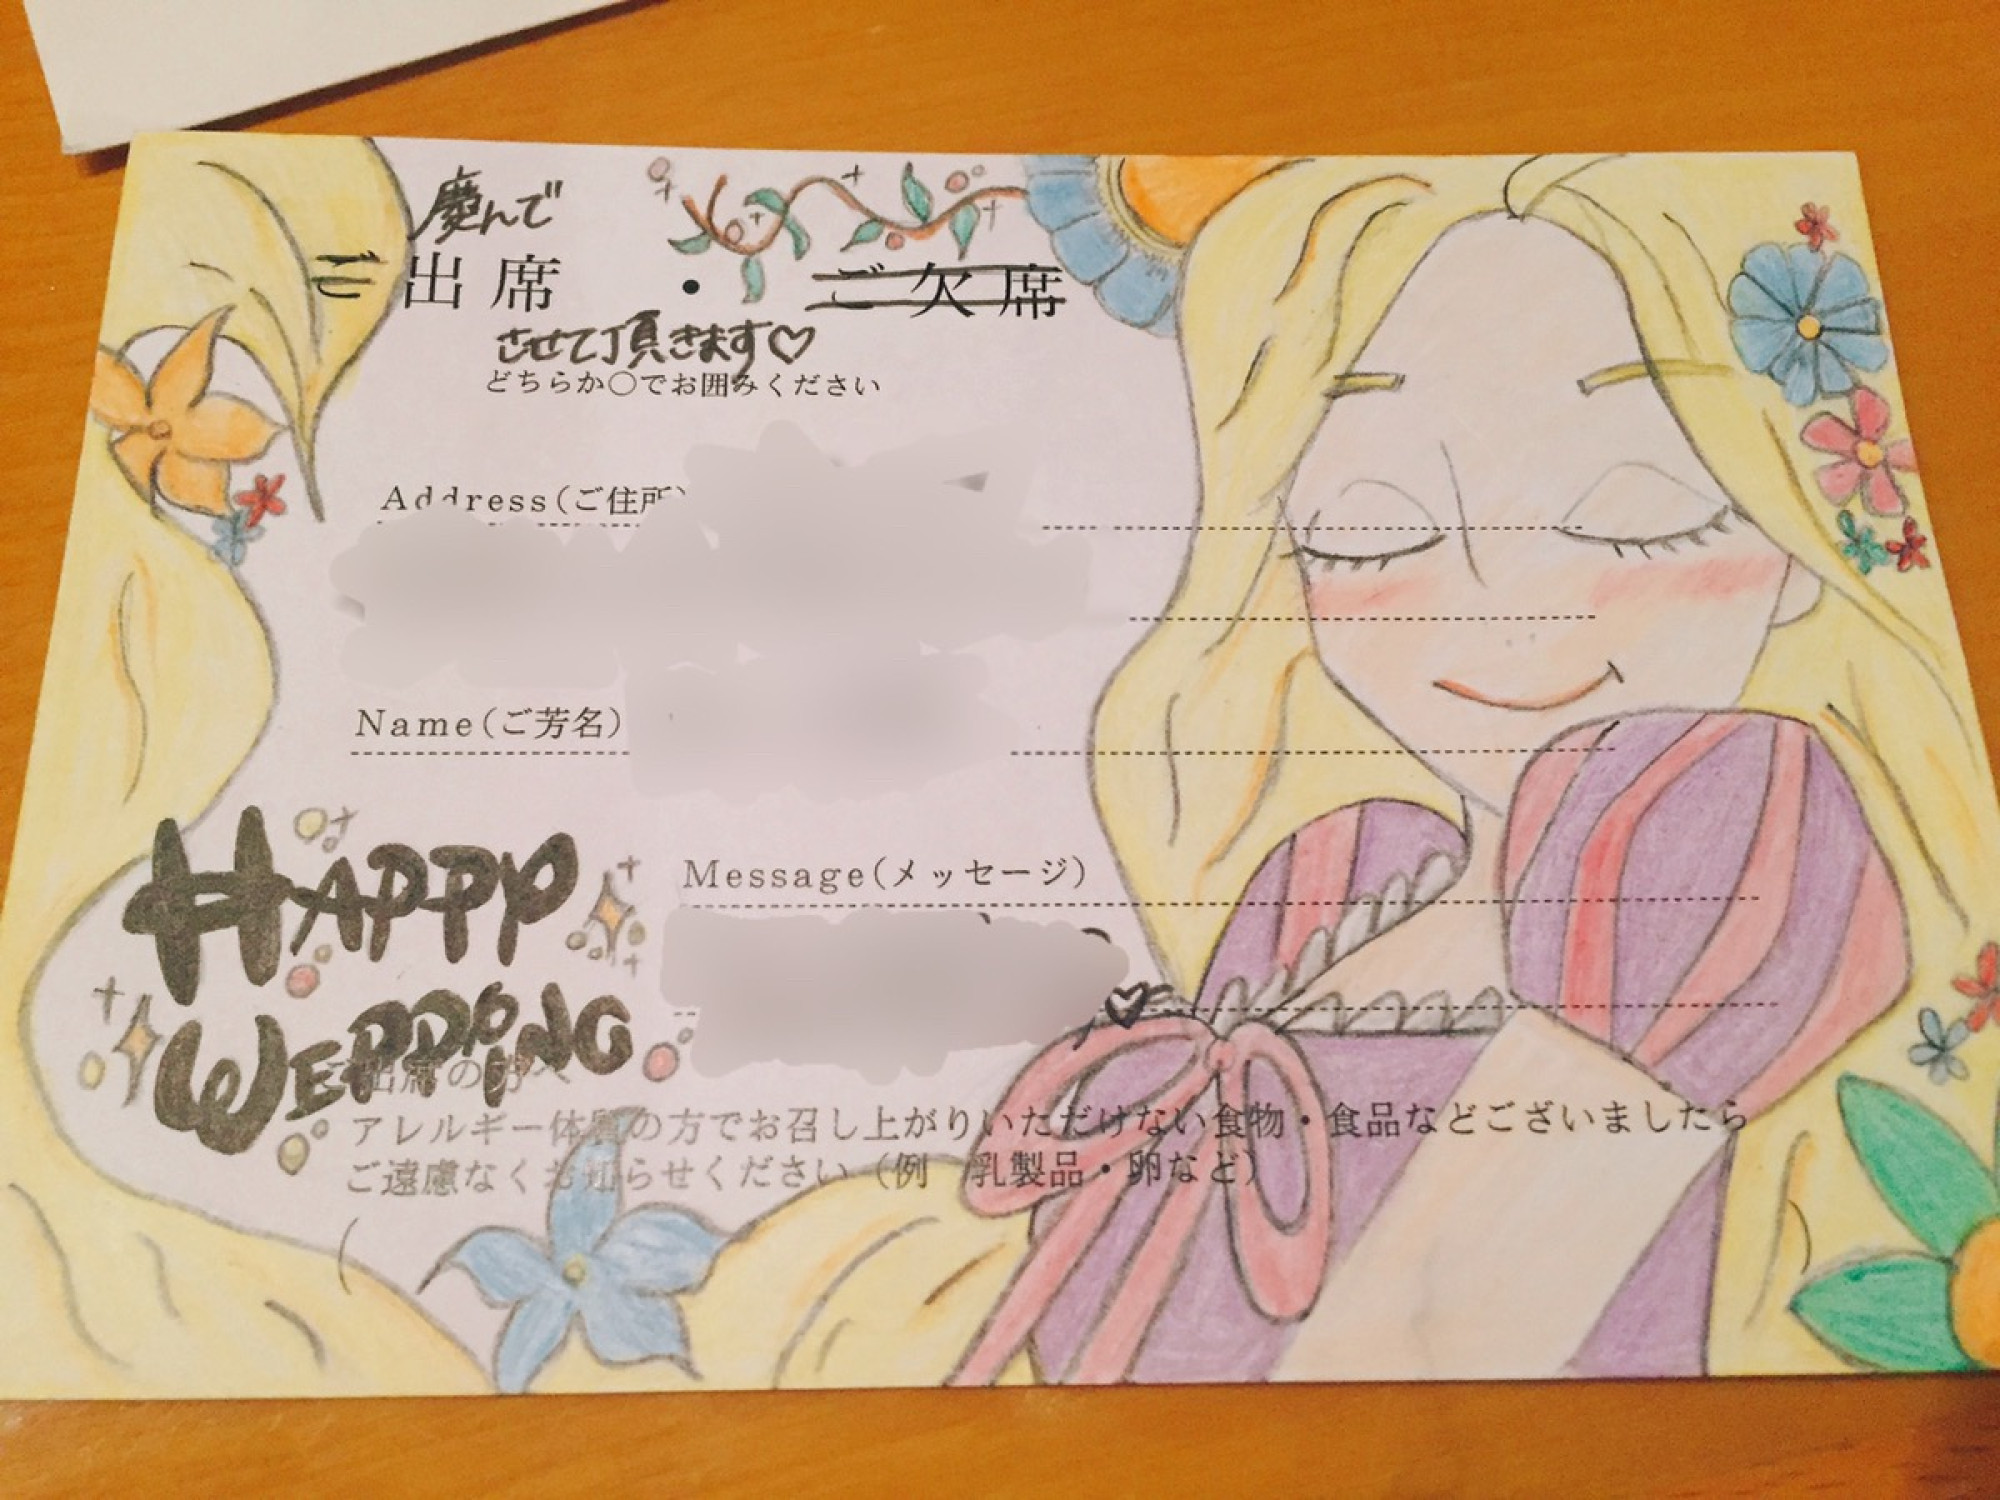 慶んで
ご出席 ・ ご欠席
させて頂きます♡
どちらか○でお囲みください
Address(ご住所)
Name(ご芳名)
HAPPY
WEDDING
Message(メッセージ)
ご出席の方へ
アレルギー体質の方でお召し上がりいただけない食物・食品などございましたら
ご遠慮なくお知らせください（例　乳製品・卵など）